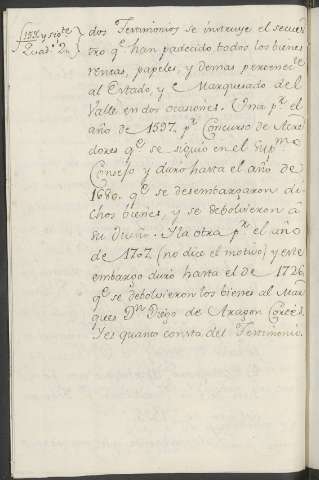 dos Testimonios se instruye el secues
tro q.e han padecido todos los bienes
rentas, papeles, y demas perteneci.te
al Estado, y Marquesado del
Valle en dos ocasiones. Una p.r el
año de 1597. p.r Concurso de Acre
dores q.e se siguio en el Sup.mo
Consejo y duró hasta el año de
1680. q.e se desembargaron di
chos bienes, y se debolvieron â
su Dueño. Y la otra p.r el año
de 1707. (no dice el motivo) y este
embargo duró hasta el de 1726
q.e se debolvieron los bienes al Mar
ques D.n Diego de Aragon Cortés.
Y es quanto consta del Testimonio.